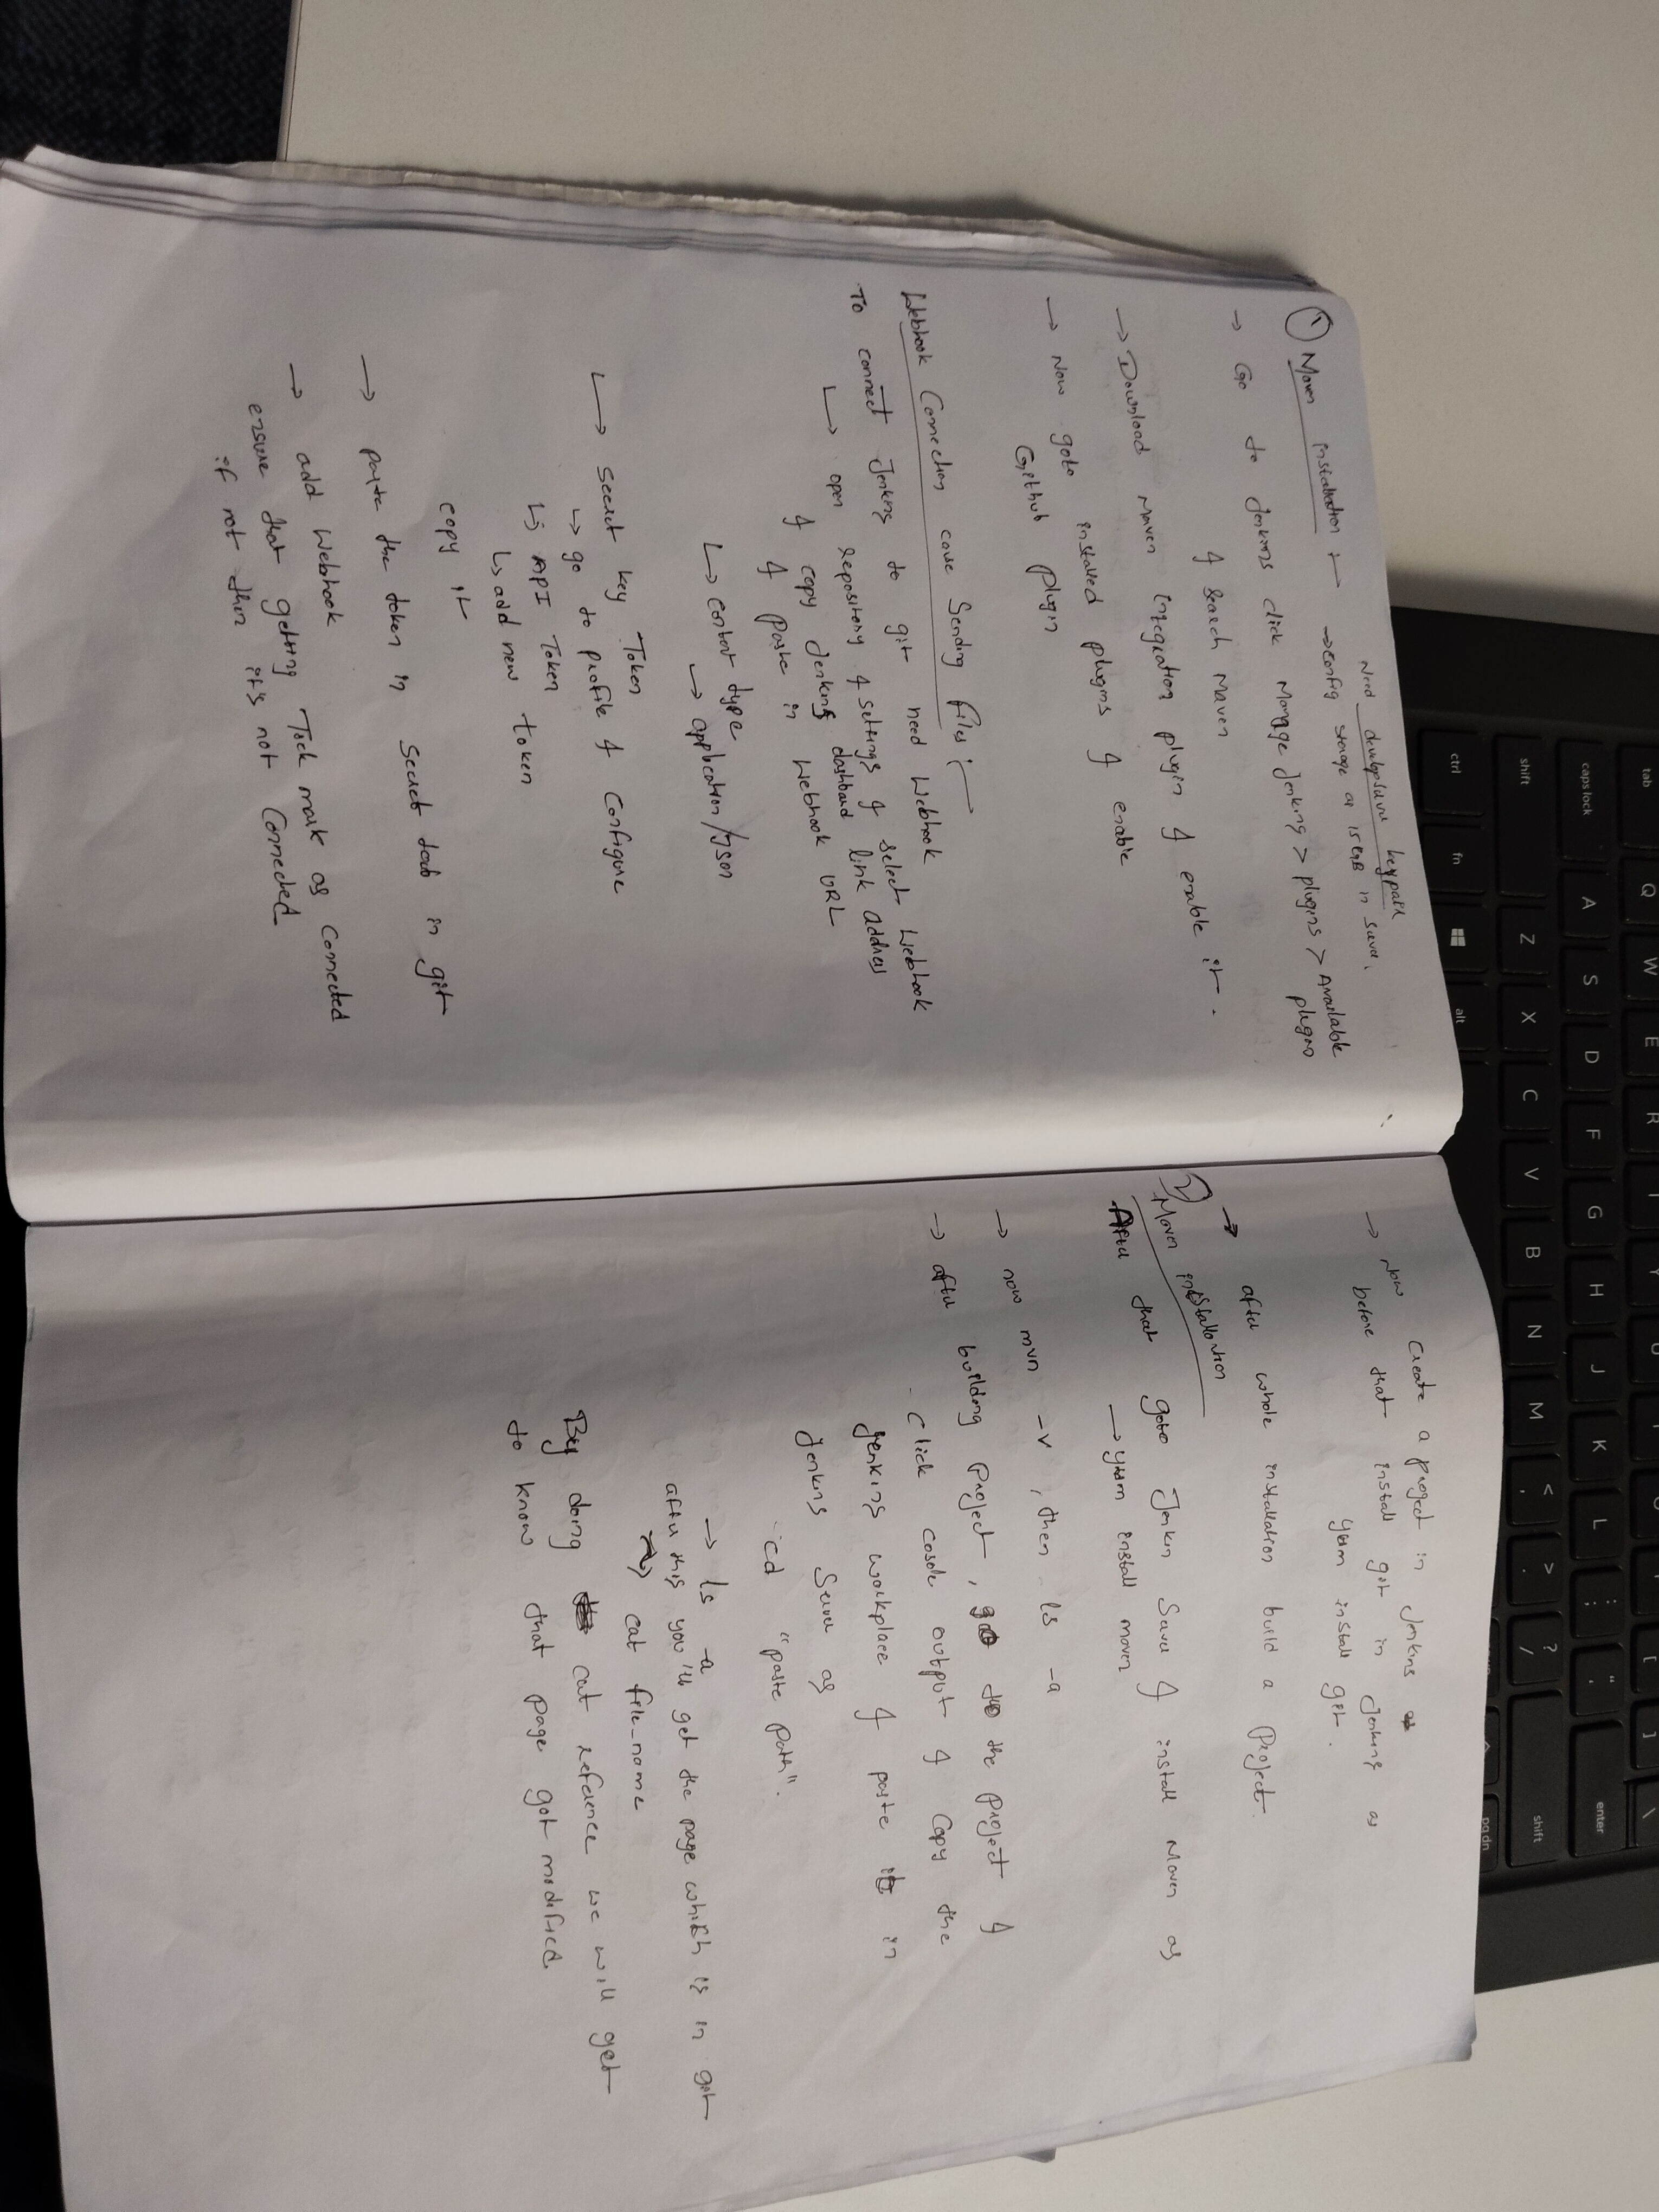 Need developserver keypair
① Maven installation :- → config storage as 15 GB in server.
→ Go to Jenkins click Manage Jenkins > plugins > Available
plugins
& Search Maven
→ Download Maven integration plugin & enable it.
→ Now goto installed plugins & enable
Github plugin
Webhook Connection cause Sending files :-
To connect Jenkins to git need Webhook
↳ open repository & settings & select Webhook
& copy Jenkins dashboard link address
& paste in Webhook URL
↳ content type
→ application/json
↳ Secret key Token
↳ go to profile & configure
↳ API Token
↳ add new token
copy it
→ paste the token in Secret tab in git
→ add Webhook
ensure that getting Tick mark as connected
if not then it's not Connected
Create a project in Jenkins
→ Now before that install git in Jenkins as
yum install git.
→ after whole installation build a Project.
2) Maven installation
After that goto Jenkin Server & install Maven as
→ yum install maven
→ now mvn -v, then ls -a
→ after building project, go to the project &
click cosole output & Copy the
Jenkins workplace & paste it in
Jenkins Server as
cd "paste path".
→ ls -a
after this you'll get the page whihch is in git
→ cat file_name
By doing cat reference we will get
to know that page got modified
tab Q W E R
caps lock A S D F G H J K L : ; " ' enter
shift Z X C V B N M < , > . ? / shift
ctrl fn alt pg dn
[ { ] } \